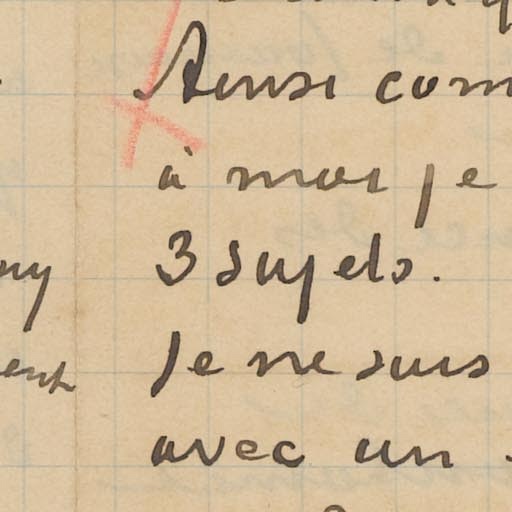 Ainsi com
à moi je
3 sujets.
Je ne suis
avec un
ny
ent